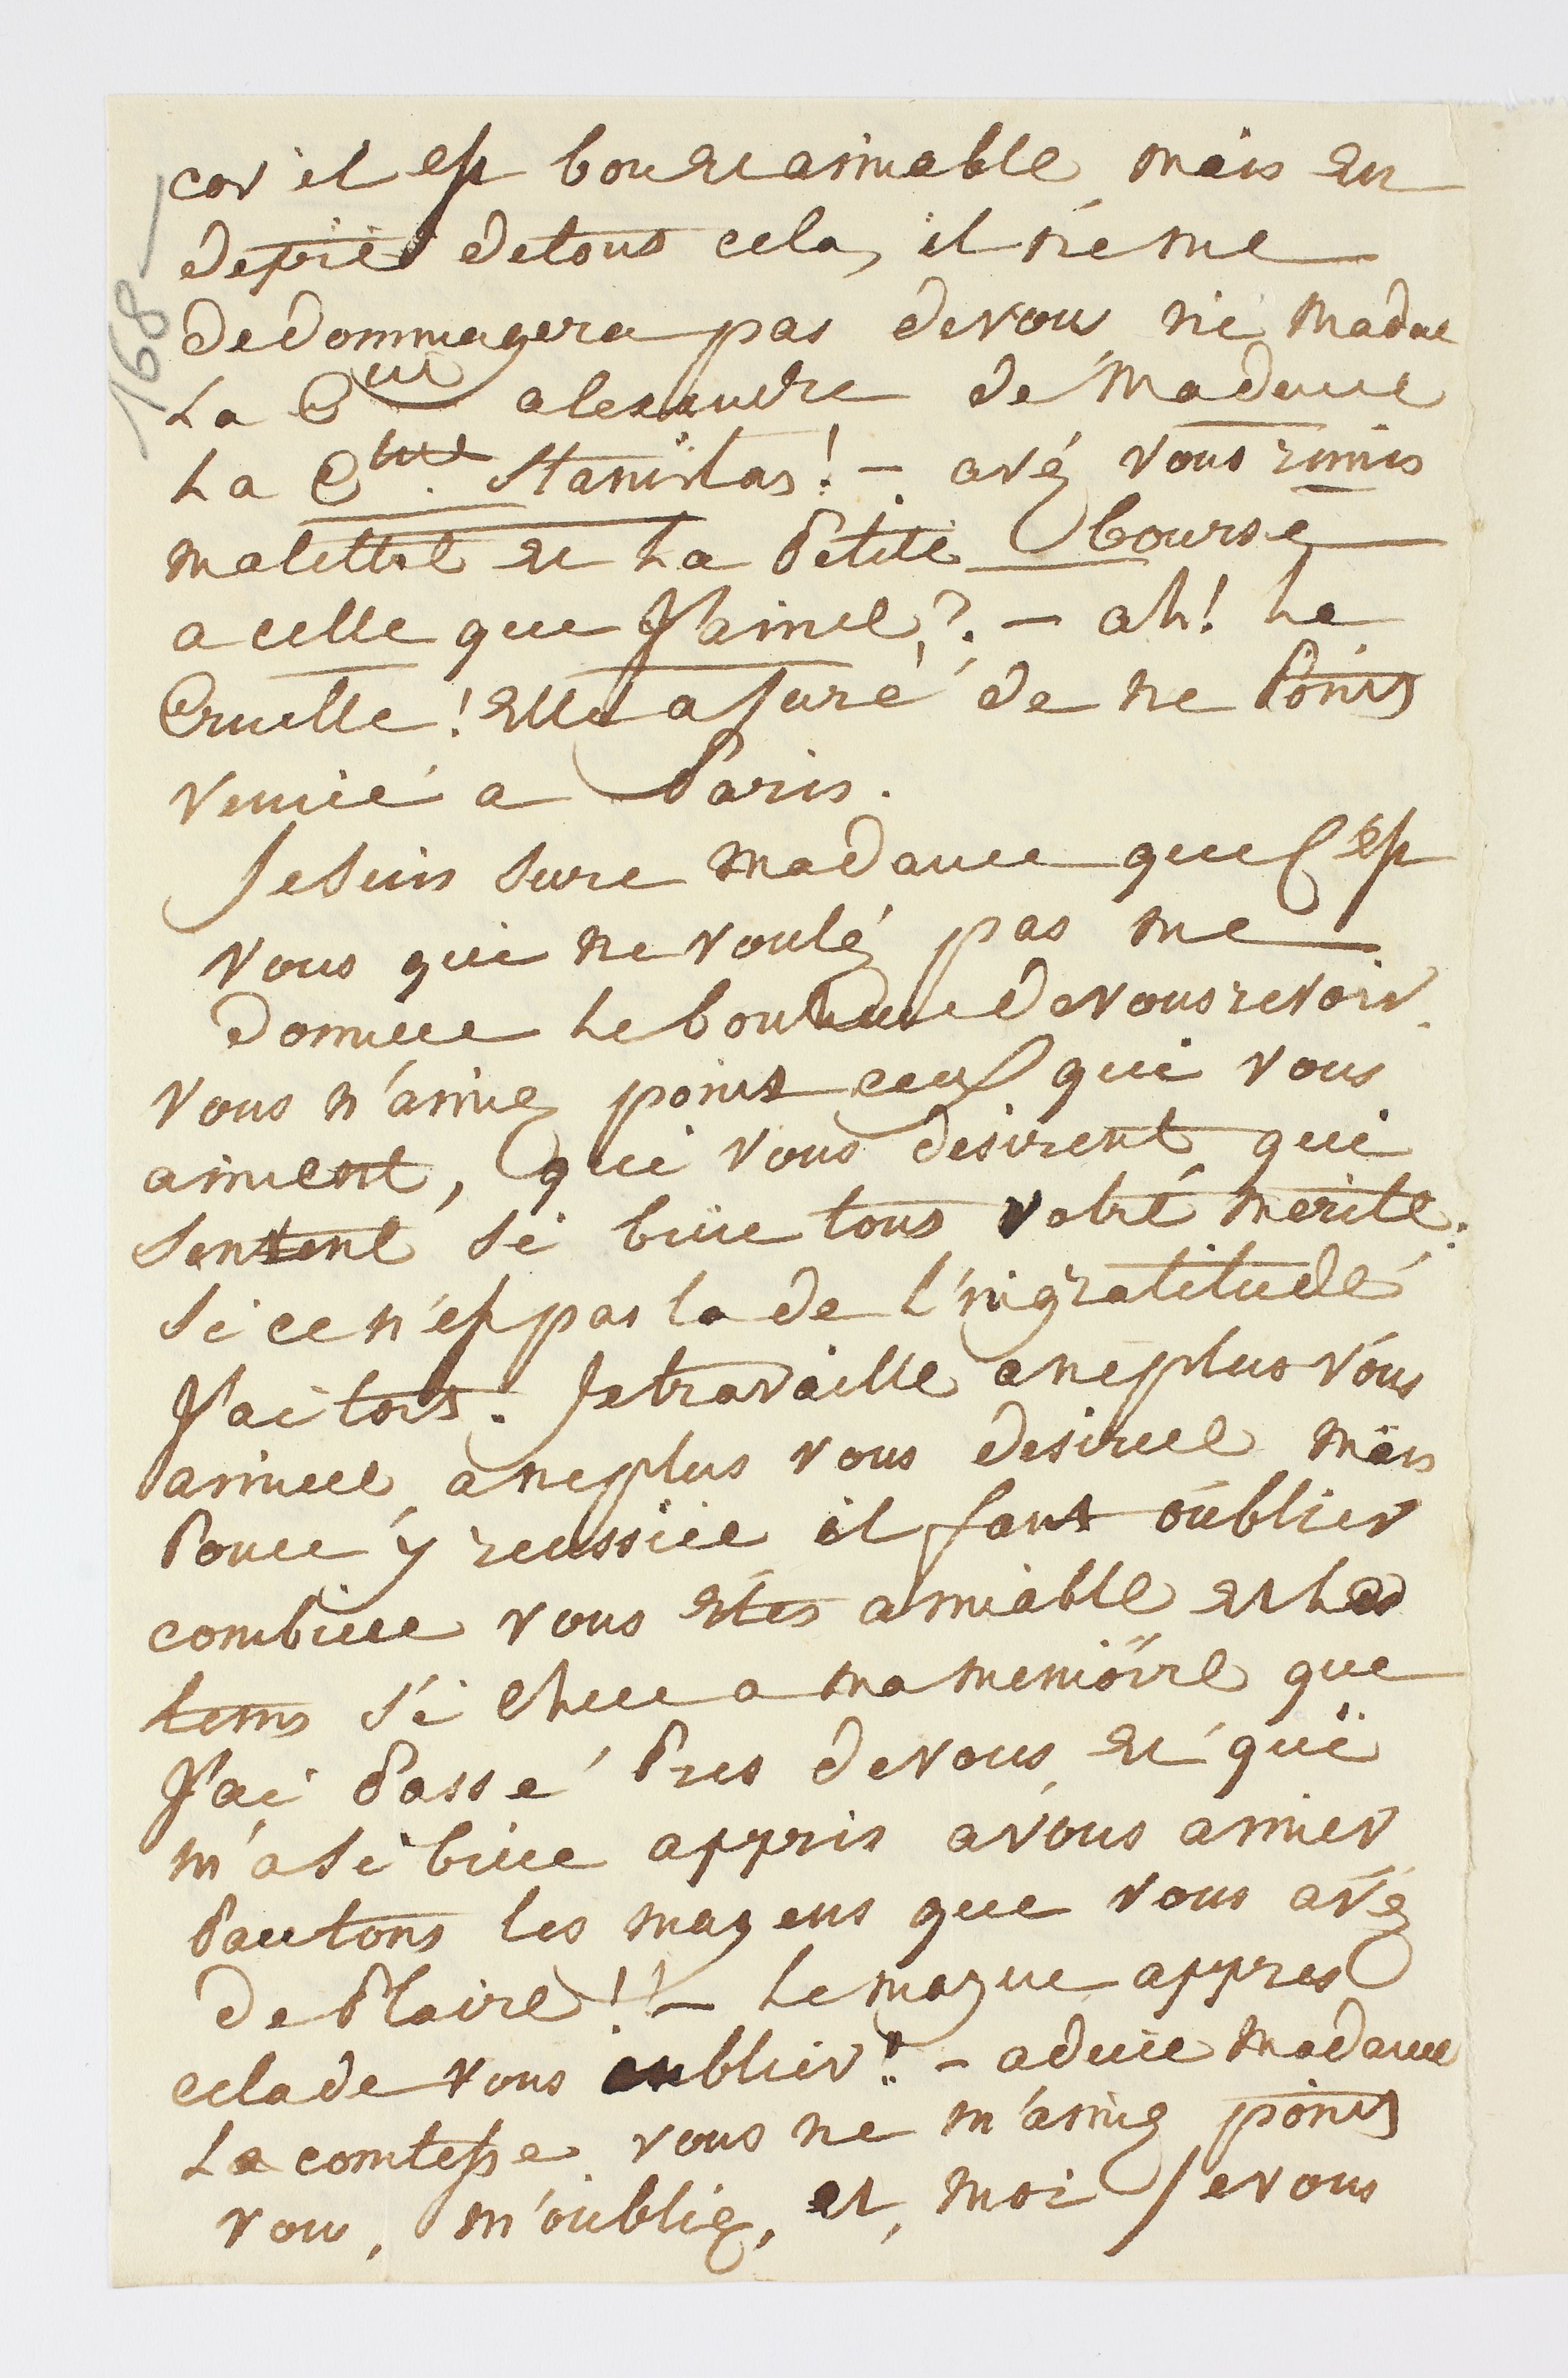 168
car il est bon et aimable mais en
depiet de tous cela, il ne me
dedommagera pas de vous ni Madme
La Ctsse alexandre de Madame
La Ctsse. Stanislas! - avés vous remis
ma lettre et La Petite bourse
a celle que J'aime? - ah! La
Cruelle! elle a Juré de ne Point
venir a Paris.
Je suis sure madame que C'est
vous qui ne voulés pas me
donner Le bonheur de vous revoir.
vous n'aimés point ceux qui vous
aiment, qui vous desirent qui
sentent si bien tous votre merite.
si ce n'est pas la de L'ingratitude
J'ai tort. Je travaille a ne plus vous
aimer, a ne plus vous desirer mais
Pour y reussir il faut oublier
combien vous etes aimable et Les
tems si cher a ma memoire que
J'ai Passé Pres de vous, et qui
m'a si bien appris a vous aimer
Par tous les moyens que vous avés
de Plaire!! - Le moyen appres
cela de vous oublier!! - adieu madame
La comtesse vous ne m'aimés point
vous, m'oubliés, et, moi Je vous